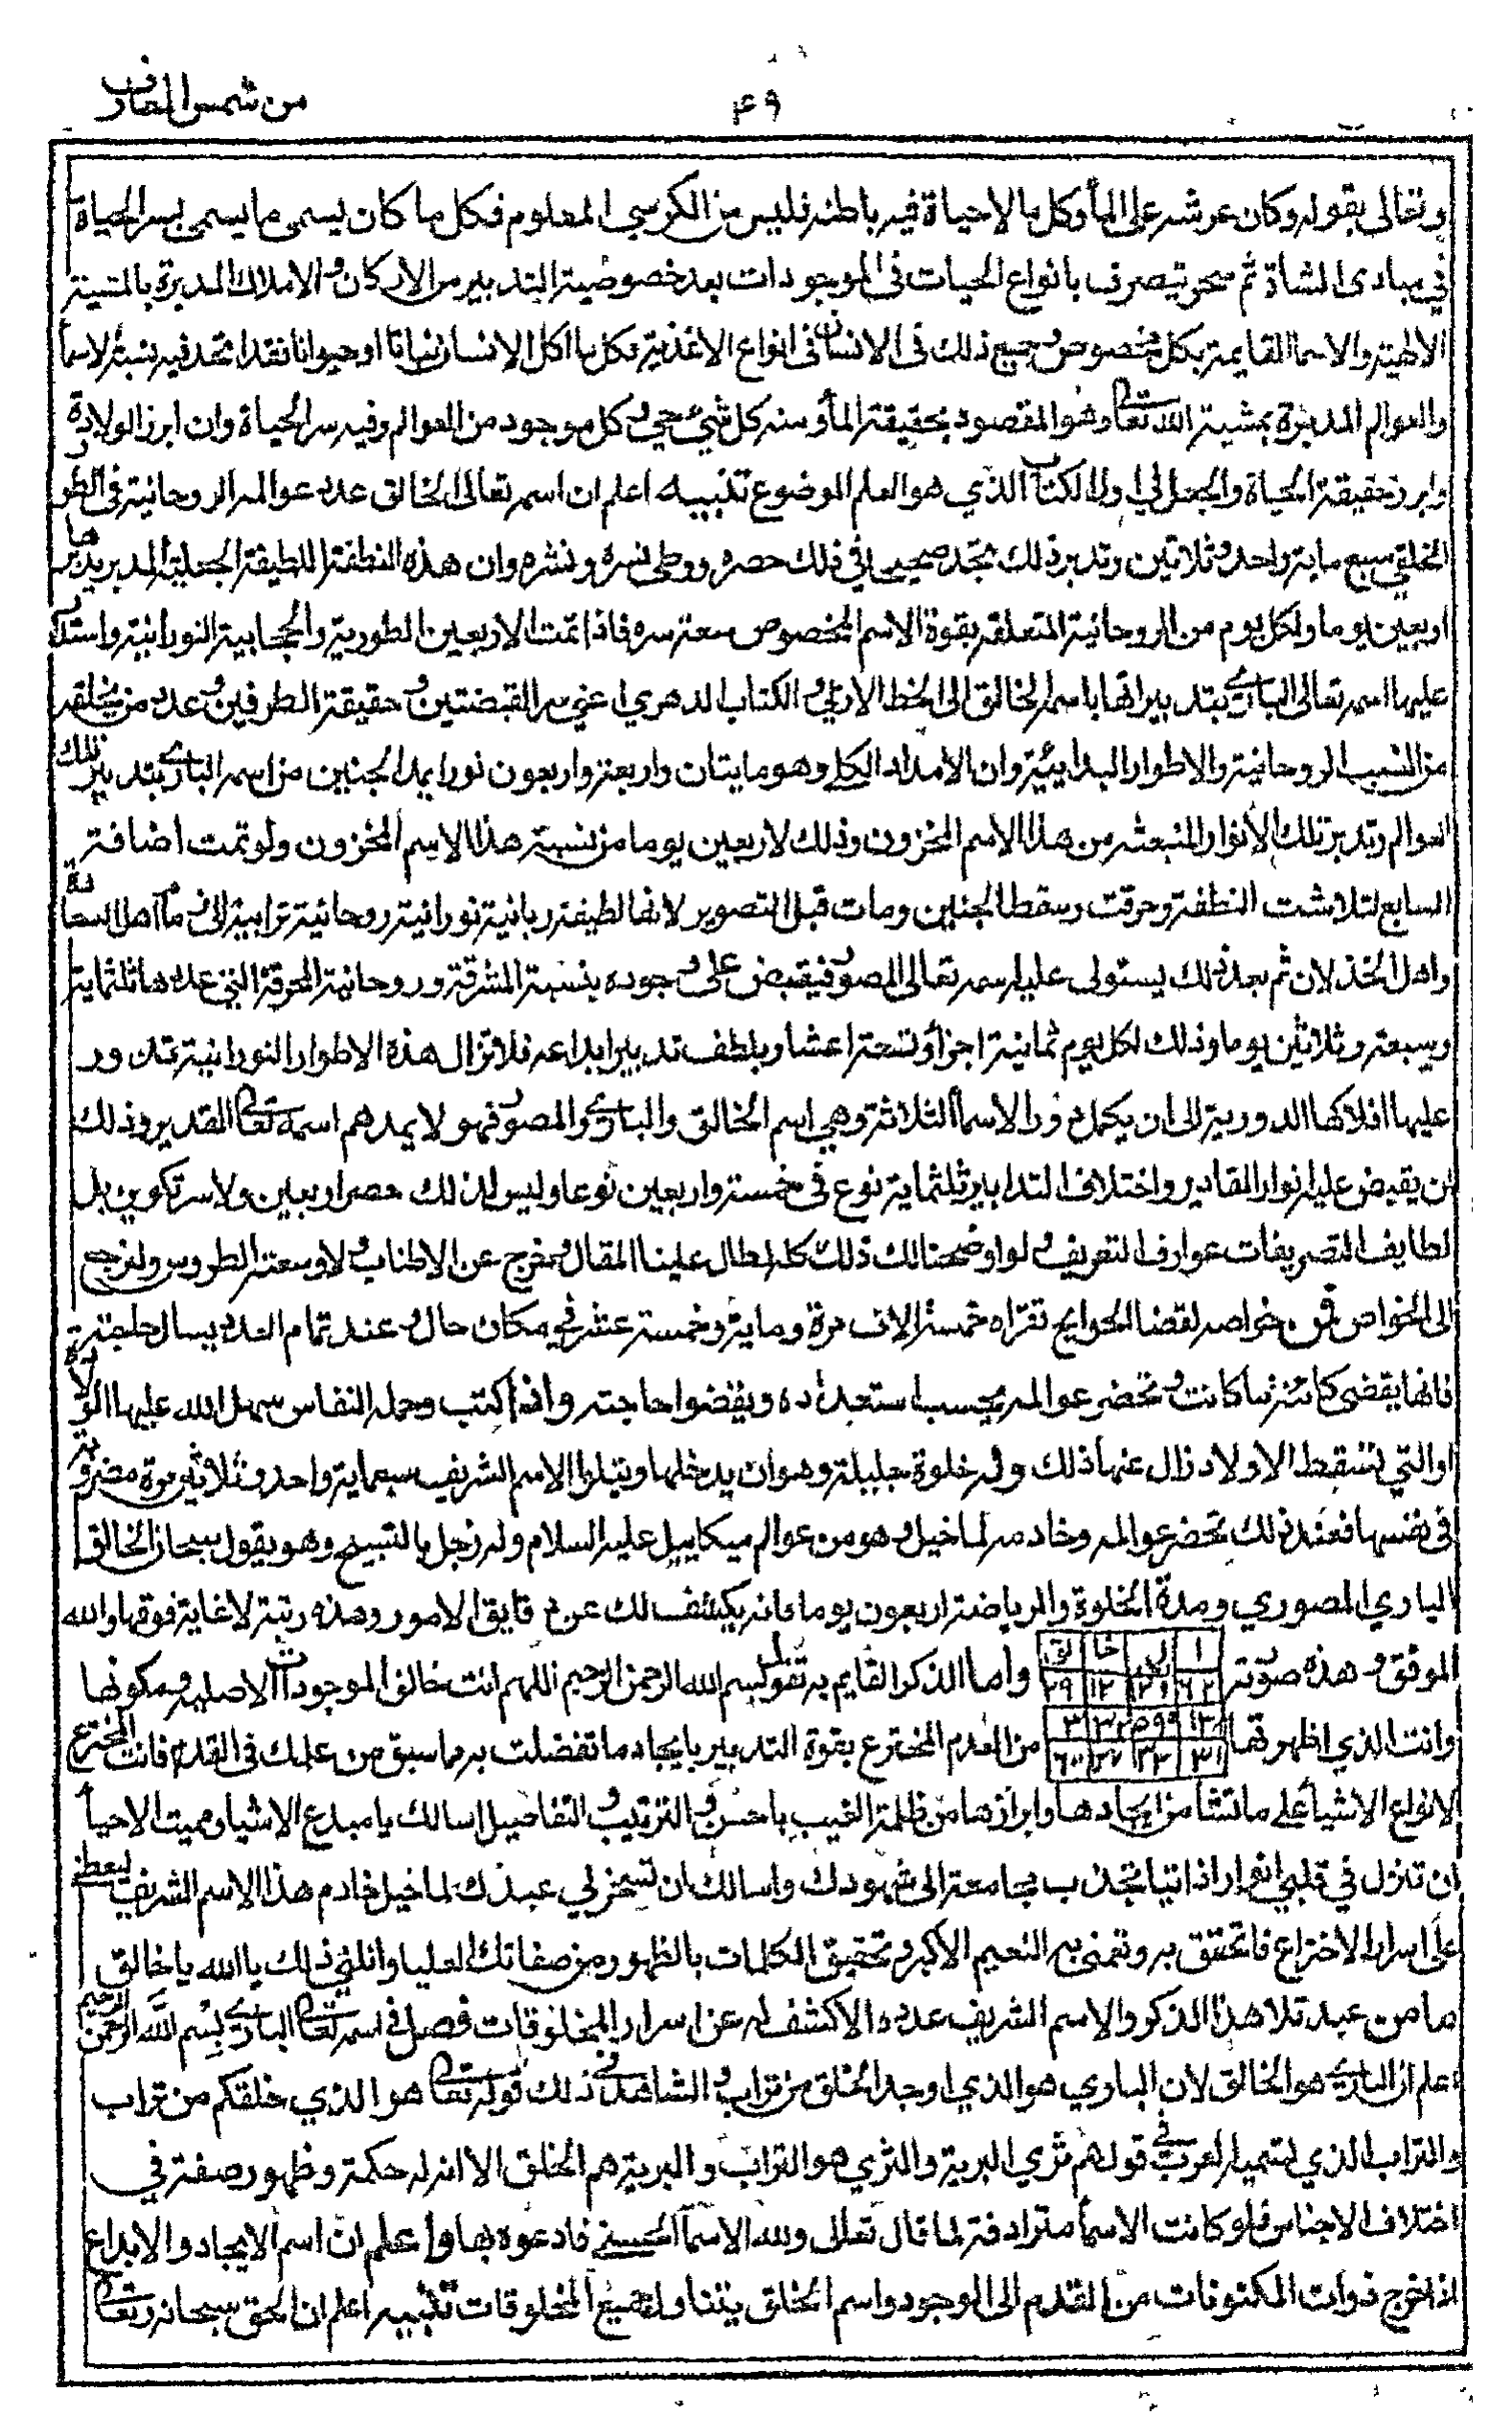 من شمس المعارف
٤٩
وتعالى بقوله وكان عرشه على المأ وكل ما لا حياة فيه باطنه فليس من الكرسي المعلوم فكل ما كان يسمى ما يسمى بسر الحياة
في مبادى النشاة ثم يتصرف بانواع الحيات فى الموجودات بعد خصوصية التدبير من الاركان والاملاك المدبرة بالمشيئة
الالهية والاسما القايمة بكل مخصوص وجميع ذلك فى الانسان فى انواع الاغذية فكل ما اكل الانسان نباتا او حيوانا فقد اتحد فيه نسبة الاسما
والعوالم المدبرة بمشية الله تعالى وهو المقصود بحقيقة المأ ومنه كل شئ حي وكل موجود من العوالم وفيه سر الحياة وان ابرز الولادة
وابرز حقيقة الحياة والجعل لي اول الكتاب الذي هو العلم الموضوع تنبيه اعلم ان اسمه تعالى الخالق عدد عوالمه الروحانية فى الطور
الخلقي سبع ماية واحد وثلاثين وتدبر ذلك تجد صحيحا في ذلك حصره وطى نسره ونشره وان هذه النطفة اللطيفة الجعلية المدبر يدبرها
اربعين يوما ولكل يوم من الروحانية المتعلقة بقوة الاسم المخصوص سعة سره فاذا تمت الاربعين الطورية والحجابية النورانية واستدار
عليها اسمه تعالى البارئ بتدبيراتها باسمه الخالق الى الخط الازلي والكتاب الدهري اعني سر القبضتين وحقيقة الطرفين وعدد من يخلقه
من النسب الروحانية والاطوار البدايية وان الامداد الكل وهو مايتان واربعة واربعون نورا يمد الجنين من اسمه البارئ بتدبير تلك
العوالم وتدبر تلك الأنوار المنبعثه من هذا الاسم المخزون وذلك لاربعين يوما من نسبة هذا الاسم المخزون ولو تمت اضافة
السابع لتلاشت النطفة وحرقت وسقط الجنين ومات قبل التصوير لانها لطيفة ربانية نورانية روحانية ترابية اهل السعادة
واهل الخذلان ثم بعد ذلك يستولى عليه اسمه تعالى المصور فيقبض على وجوده بنسبة المشرقة وروحانية المحرقة التي عددها ثلثماية
وسبعة وثلاثين يوما وذلك لكل يوم ثمانية اجزأ وتسعة اعشار بلطف تدبير ابداعه فلا تزال هذه الاطوار النورانية تدور
عليها افلاكها الدورية الى ان يكمل دور الاسما الثلاثة وهي اسم الخالق والبارئ والمصور فهو لا يمدهم اسمه تعالى القدير وذلك
ان يقبض عليه انوار المقادير واختلاف التدابير ثلثماية نوع فى خمسة واربعين نوعا وليس لذلك حصر اربعين ولا سر تكوين بل
لطايف التصريفات عوارف التعريف ولو اوضحنا لك ذلك كله لطال علينا المقال وخرج عن الاطناب ولا وسعته الطروس ولنرجع
الى الخواص فمن خواصه لقضا الحوايج تقراه خمسة الاف مرة وماية وخمسة عشر في مكان خال وعند تمام العدد يسال حاجته
فانها يقضى كائنة ما كانت وتحضر عوالمه بحسب استعداده ويقضوا حاجته واذا كتب وحمله النفاس سهل الله عليها الولادة
او التي تسقط الاولاد زال عنها ذلك وله خلوة جليلة وهو ان يدخلها ويتلوا الاسم الشريف سبعماية واحد وثلاثين مرة مضروبة
فى نفسها فعند ذلك تحضر عوالمه وخادمه لماخيل وهو من عوالم ميكاييل عليه السلام وله زجل بالتسبيح وهو يقول سبحان الخالق
الباري المصوري ومدة الخلوة والرياضة اربعون يوما فانه يكشف لك عن دقايق الامور وهذه رتبة لا غاية فوقها والله
الموفق وهذه صورته ا ل خا لق واما الذكر القايم به تقول بسم الله الرحمن الرحيم اللهم انت خالق الموجودات الاصلية ومكونها
وانت الذي اظهرتها من العدم المخترع بقوة التدبير بايجاد ما تفضلت به ما سبق من علمك فى القدم فانت المخترع
لانواع الاشيأ على ما تشا من ايجادها وابرازها من ظلمة الغيب باحسن الترتيب والتفاصيل اسالك يا مبدع الاشيا ومميت الاحيأ
ان تنزل في قلبي انوارا ذاتيا تجذب بجامعة الى شهودك واسالك ان تسخر لي عبدك لماخيل خادم هذا الاسم الشريف
على اسرار الاختراع فاتحقق به وتمنى به النعيم الأكبر وتحقيق الكلمات بالظهور من صفاتك العليا وانلني ذلك يا الله يا خالق
ما من عبد تلا هذا الذكر والاسم الشريف عدده الا كشف له عن اسرار المخلوقات فصل فى اسمه تعالى البارئ بسم الله الرحمن الرحيم
اعلم ان البارئ هو الخالق لان الباري هو الذي اوجد الخلق من تراب والشاهد فى ذلك قوله تعالى هو الذي خلقكم من تراب
والتراب الذي تسميه العرب في قولهم ثري البرية والثري هو التراب والبرية هم الخلق الا انه له حكمة وظهور صفة في
اختلاف الاجناس فلو كانت الاسمأ مترادفة لما قال تعالى ولله الاسما الحسنى فادعوه بها واعلم ان اسم الايجاد والابداع
اذا خرج ذوات المكنونات من القدم الى الوجود واسم الخلق يتناول جميع المخلوقات تنبيه اعلم ان الحق سبحانه وتعالى